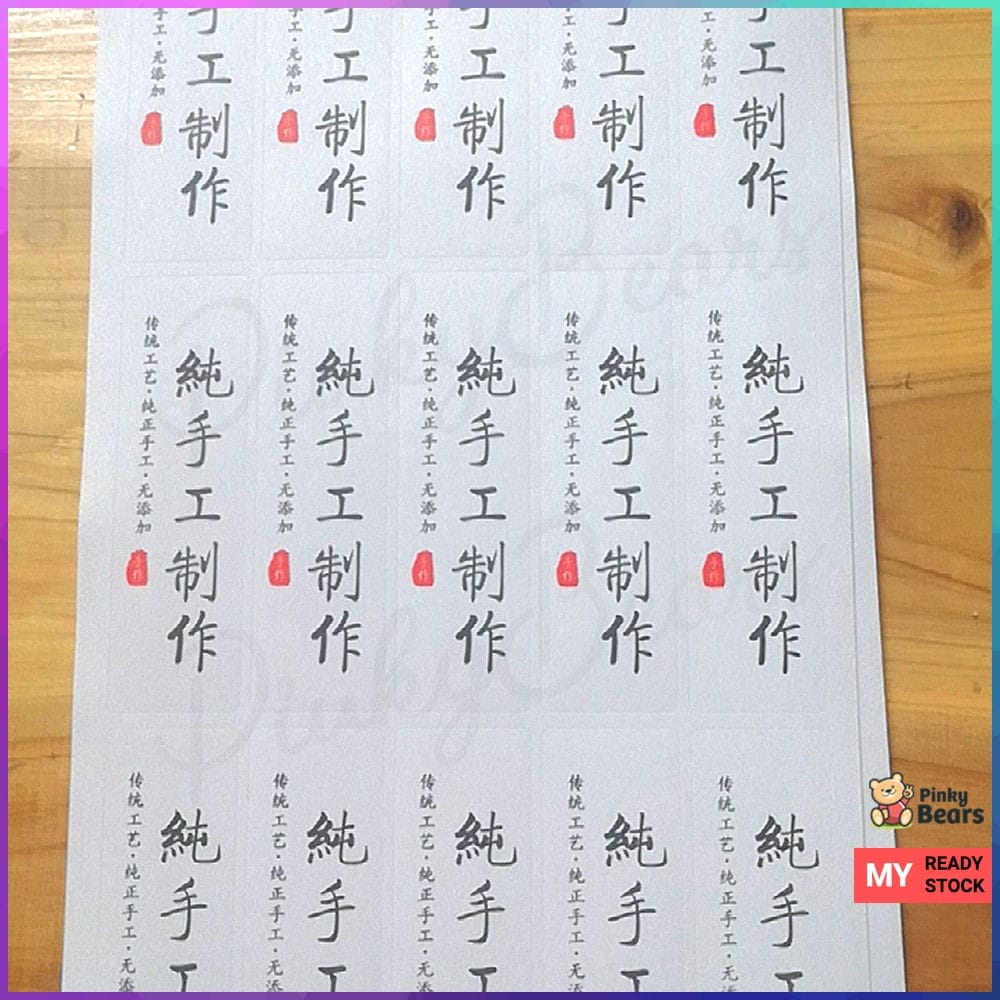 工制作
工·无添加
手作
工制作
工·无添加
手作
工制作
工·无添加
手作
工制作
工·无添加
手作
工制作
工·无添加
手作
純手工制作
传统工艺·纯正手工·无添加
手作
純手工制作
传统工艺·纯正手工·无添加
手作
純手工制作
传统工艺·纯正手工·无添加
手作
純手工制作
传统工艺·纯正手工·无添加
手作
純手工制作
传统工艺·纯正手工·无添加
手作
純手工
传统工艺·纯正手工·无添
純手工
传统工艺·纯正手工·无
純手工
传统工艺·纯正手工·无
純手工
传统工艺·纯正手工·无
純手工
传统工艺·纯正手工·无
Pinky Bears
Pinky Bears
Pinky
Bears
MY
READY
STOCK